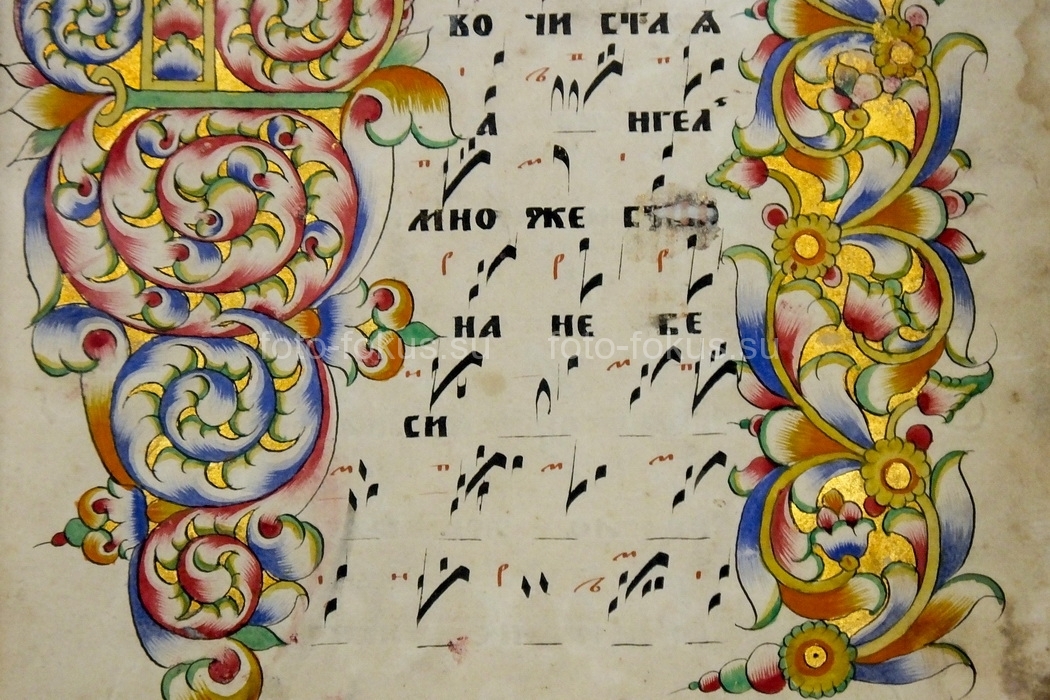 во чи стаѧ
а нгел
мно же с
на не бе
си
foto-fokus.su foto-fokus.su